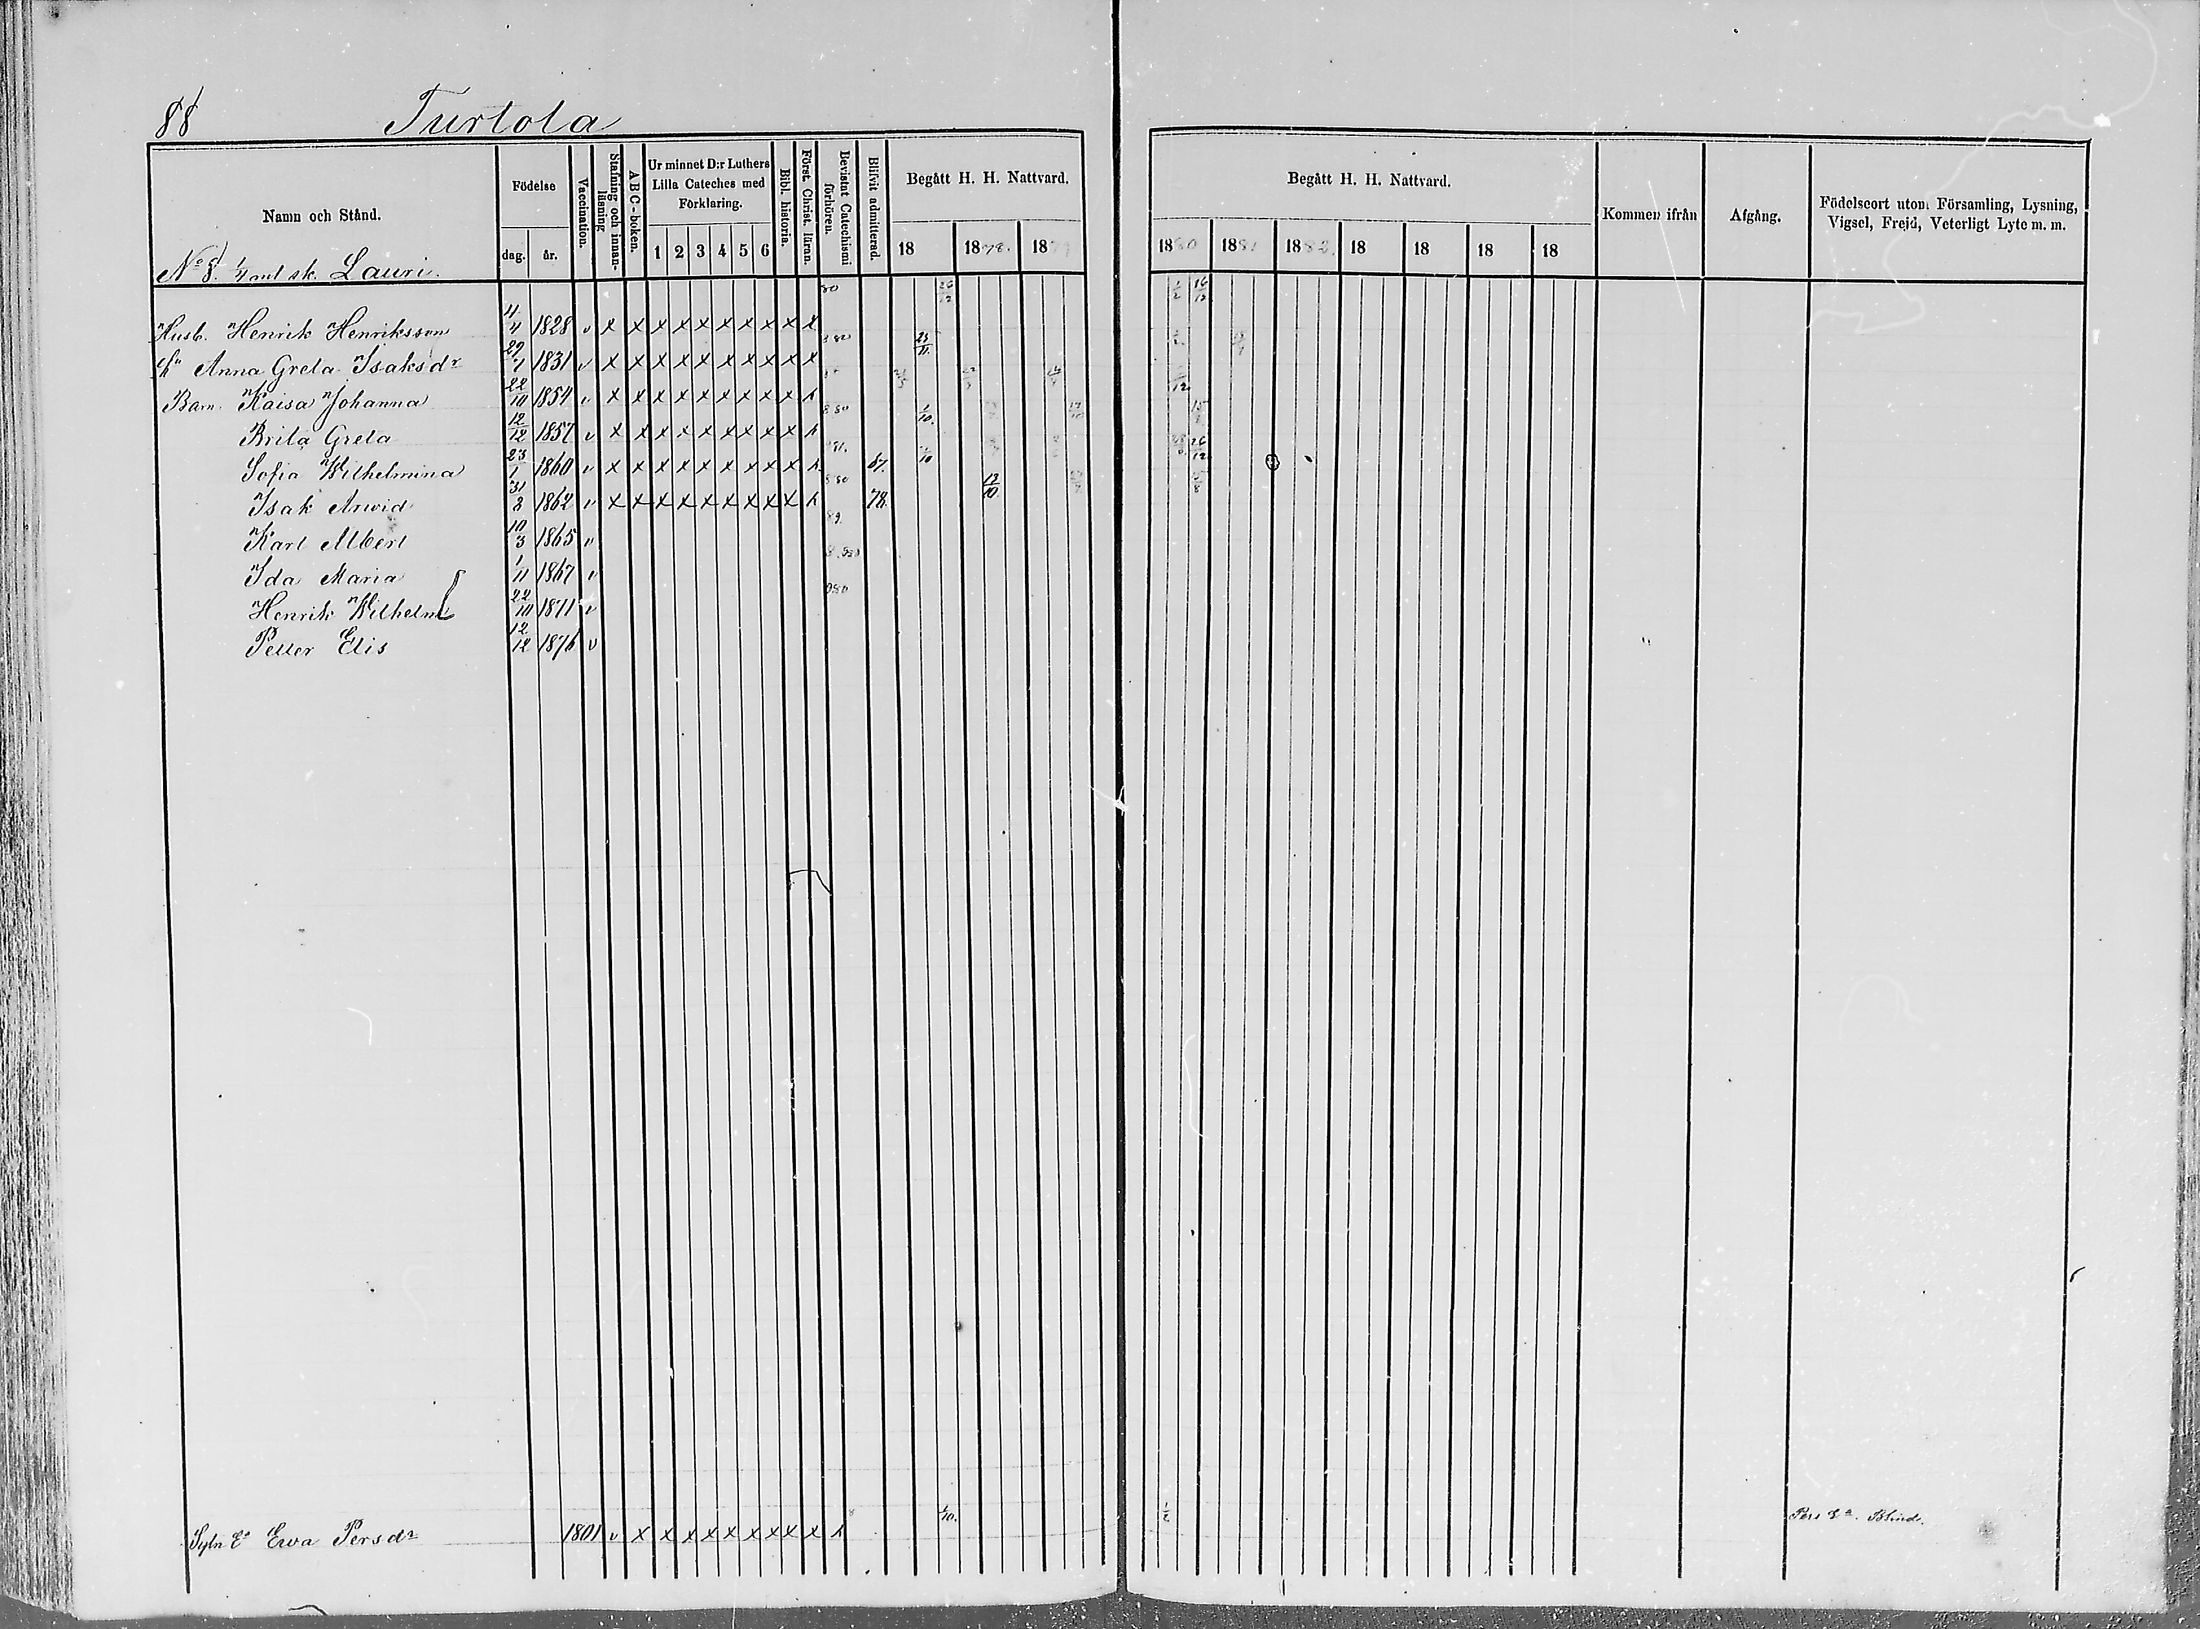 88 Turtola
Namn och Stånd. Födelse dag. år. Vaccination. Stafning och innan-läsning ABC-boken. Ur minnet D:r Luthers Lilla Cateches med Förklaring. 1 2 3 4 5 6 Bibl. historia. Först. Christ. läran. Bevistat Catechismi förhören. Blifvit admitterad. Begått H. H. Nattvard. 18 1878. 18
Begått H. H. Nattvard. 1880 1881 1882. 18 18 18 18 Kommen ifrån Afgång. Födelseort utom Församling, Lysning, Vigsel, Frejd, Veterligt Lyte m. m.
No 8. 1/4 mtl sk. Lauri.
Husb. Henrik Henriksson 4/4 1828 v x x x x x x x x x x 80 26/12 1/2 16/12
Anna Greta Isaksdr 29/7 1831 v x x x x x x x x x x 25/11
Barn. Kaisa Johanna 22/10 1854 v x x x x x x x x x h
Brita Greta 12/12 1857 v x x x x x x x x x h 1/10.
Sofia Wilhelmina 23/1 1860 v x x x x x x x x x h 67. 26/12
Isak Arwid 31/3 1862 v x x x x x x x x x h 78. 12/10
Karl Albert 10/3 1865 v
Ida Maria 1/11 1867 v
Henrik Wilhelm 22/10 1871 v
Petter Elis 12/12 1876 v
Sytn Ea Ewa Persdr 1801 v x x x x x x x x x h 1/10. 1/2 Blind.